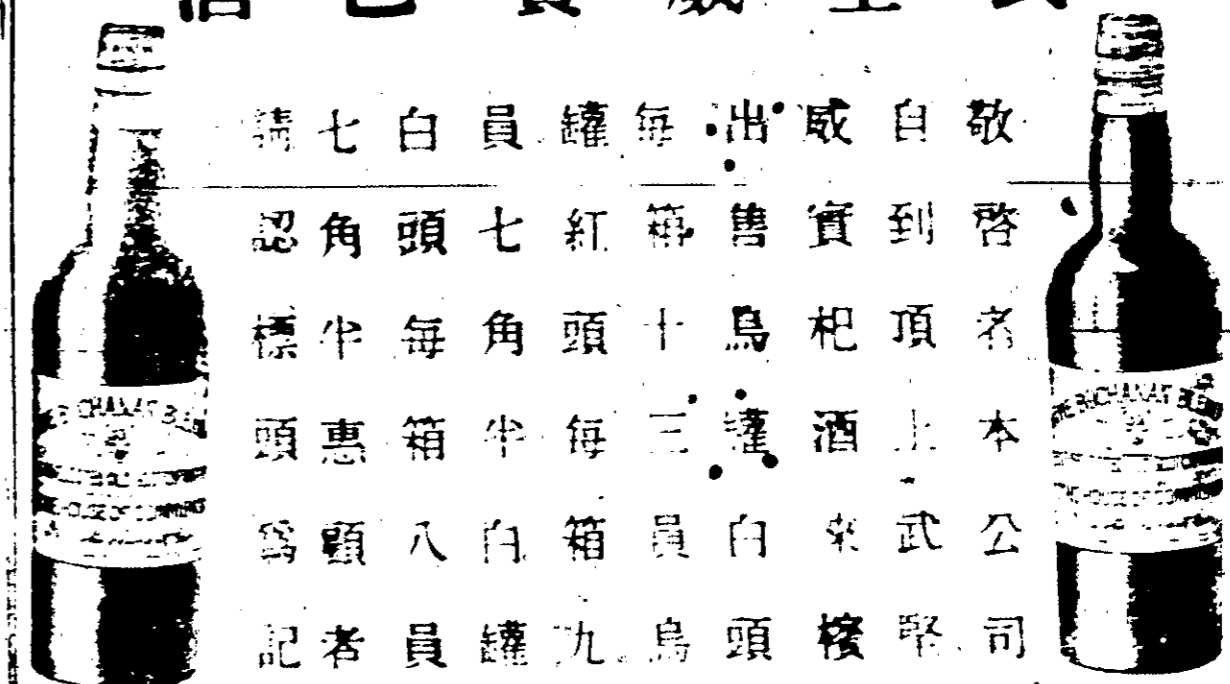 敬啓者本公司
自到頂上武堅
威實杷酒來檳
出售烏罐白頭
每箱十三員烏
罐紅頭每箱九
員七角半白罐
白頭每箱八員
七角半惠顧者
請認標頭爲記
THE BUCHANAN BLEND
THE HOUSE OF COMMONS
THE BUCHANAN BLEND
THE HOUSE OF COMMONS